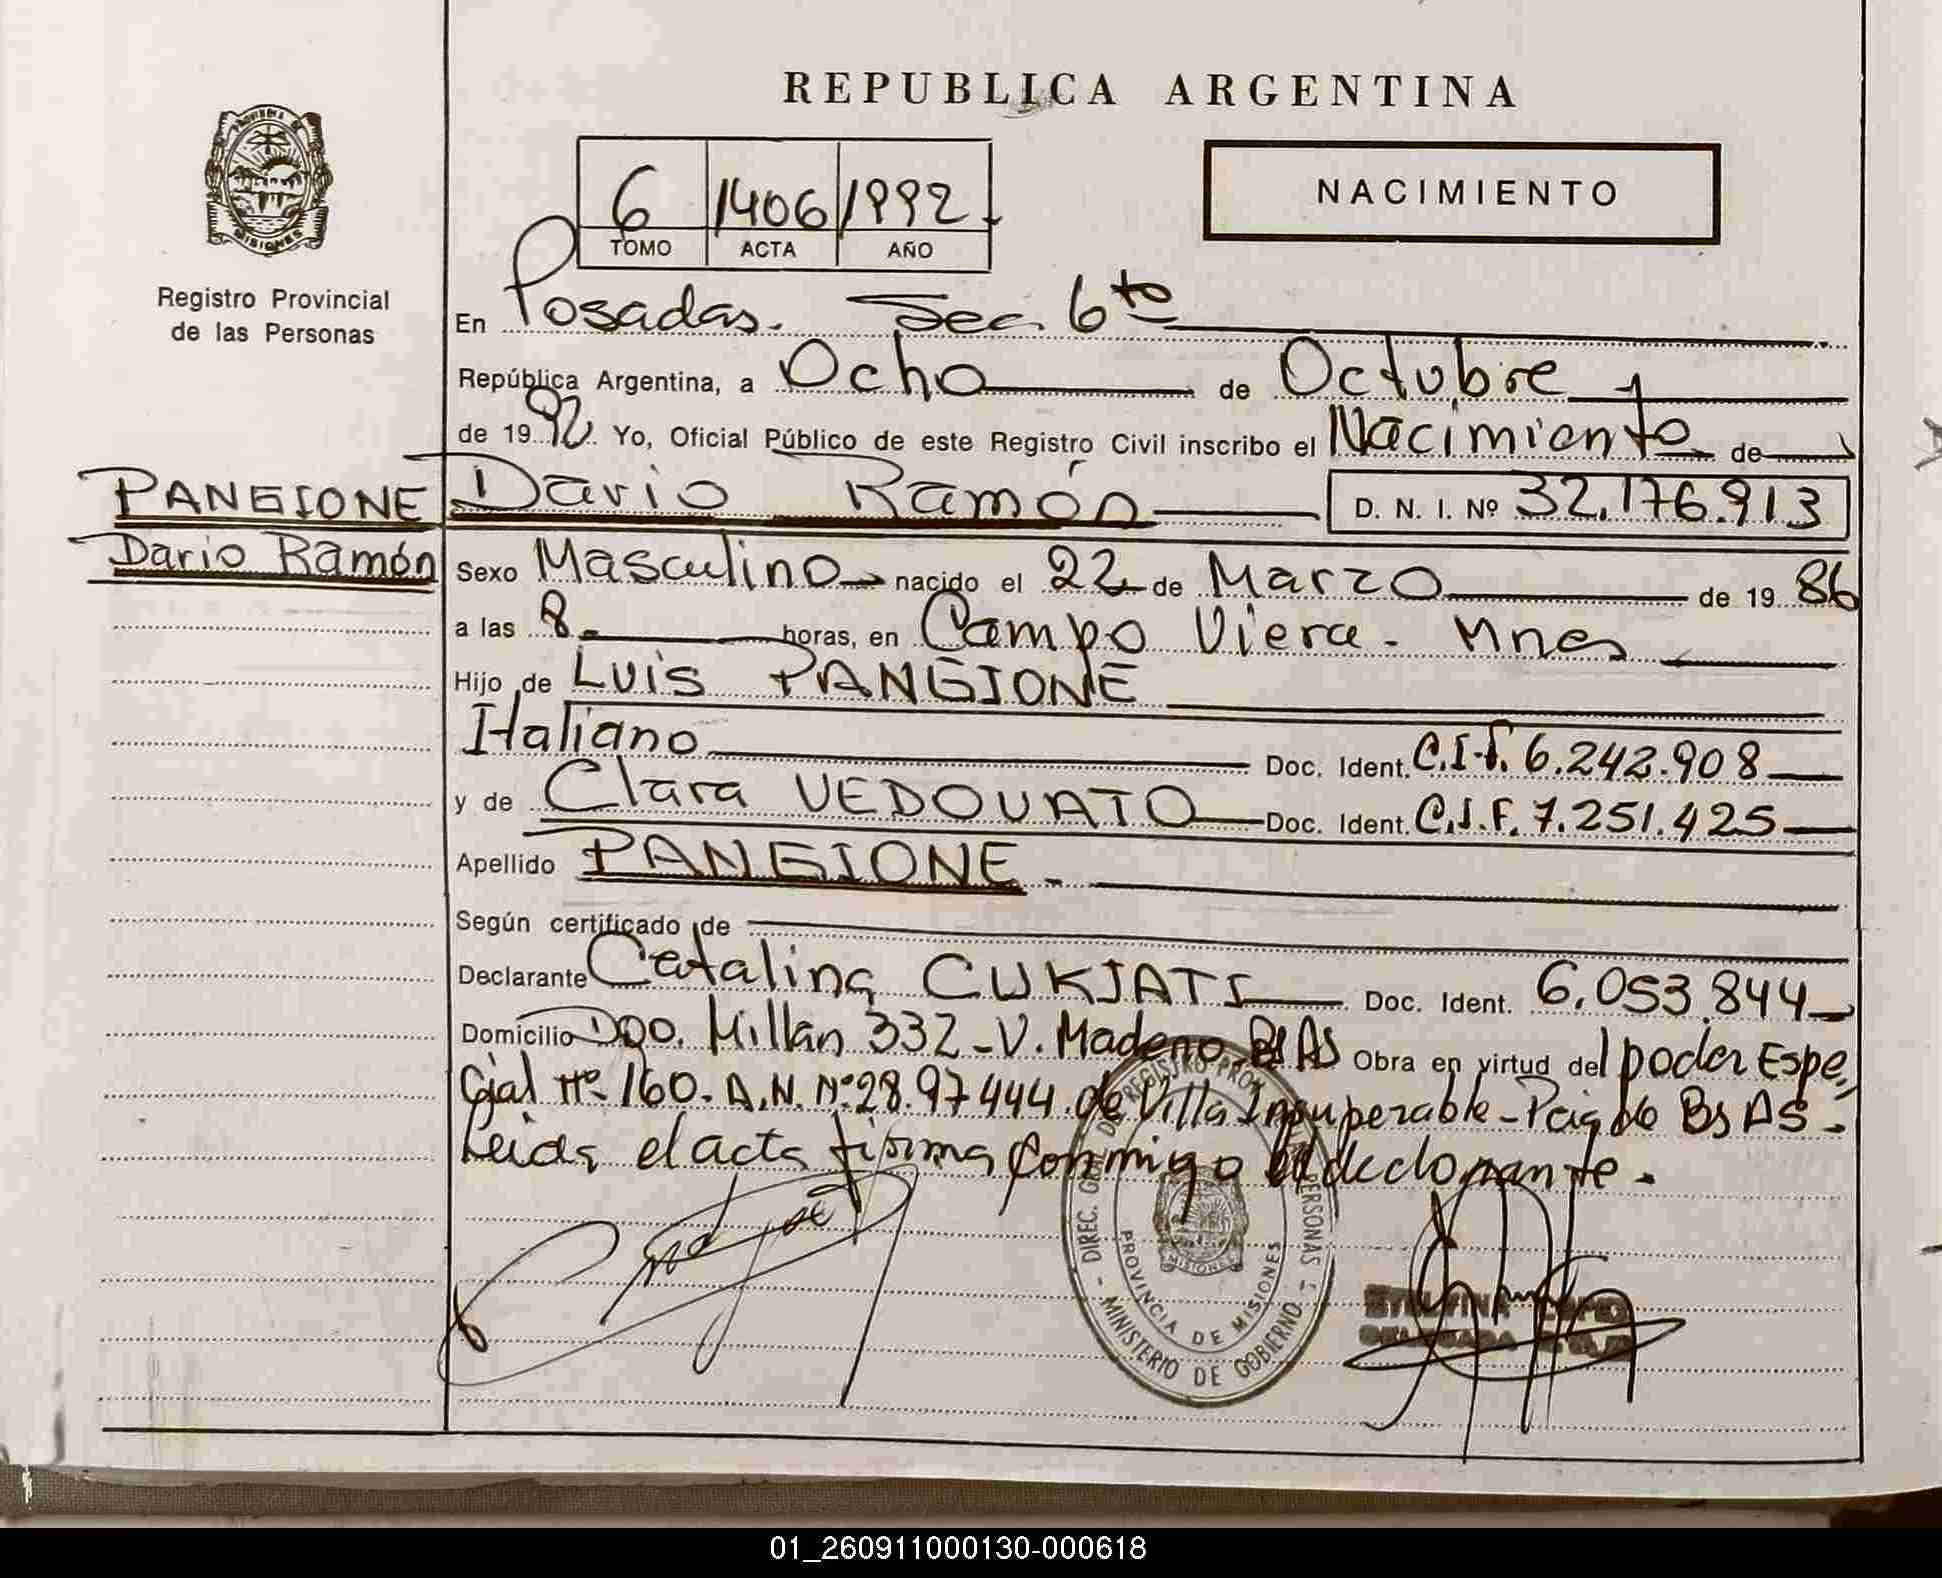 REPUBLICA ARGENTINA
6 1406 1992
TOMO ACTA AÑO
NACIMIENTO
PROVINCIA DE
MISIONES
Registro Provincial
de las Personas
En Posadas. Sec. 6ta
República Argentina, a Ocho de Octubre
de 1992. Yo, Oficial Público de este Registro Civil inscribo el Nacimiento de
PANGIONE
Dario Ramón
Dario Ramón D. N. I. Nº 32.176.913
Sexo Masculino nacido el 22 de Marzo de 19 86
a las 8 horas, en Campo Viera - Mnes
Hijo de Luis PANGIONE
Italiano Doc. Ident. C.I.F. 6.242.908
y de Clara VEDOVATO Doc. Ident. C.I.F. 7.251.425
Apellido PANGIONE
Según certificado de
Declarante Catalina CUKJATI Doc. Ident. 6.053.844
Domicilio Millán 332 - V. Madero Bs As Obra en virtud del poder Espe
cial Nº 160. A.N. Nº 28.97444 de Villa Insuperable - Bs AS.
Leida el acta firma conmigo el declarante.
DIREC. GRAL. DE REGISTRO PROV. PERSONAS
PROVINCIA DE MISIONES
MISIONES
MINISTERIO DE GOBIERNO
01_260911000130-000618